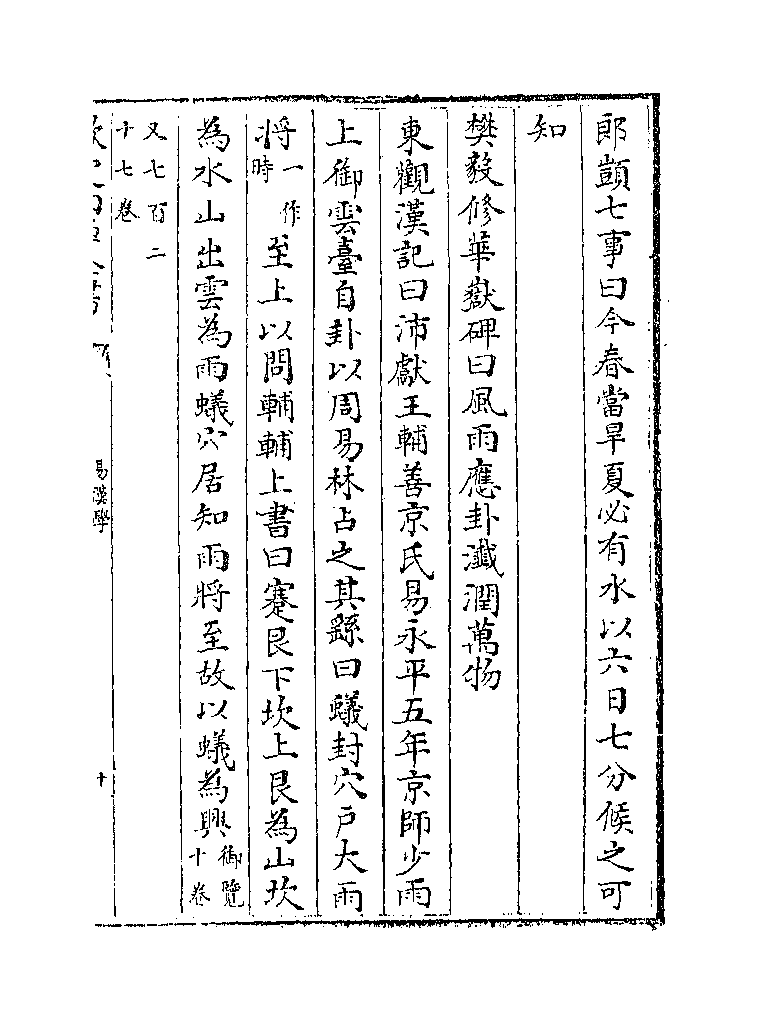 郎顗七事曰今春當旱夏必有水以六日七分候之可
知
樊毅修華嶽碑曰風雨應卦瀸潤萬物
東觀漢記曰沛獻王輔善京氏易永平五年京師少雨
上御雲臺自卦以周易林占之其繇曰蟻封穴戶大雨
將一作時至上以問輔輔上書曰蹇艮下坎上艮為山坎
為水山出雲為雨蟻穴居知雨將至故以蟻為興御覽十卷
又七百二十七卷
易漢學
十